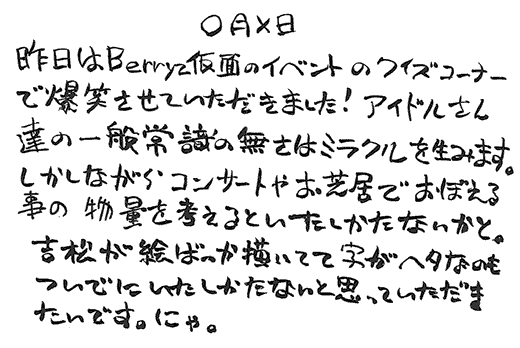 ○月×日
昨日はBerryz仮面のイベントのクイズコーナー
で爆笑させていただきました！アイドルさん
達の一般常識の無さはミラクルを生みます。
しかしながらコンサートやお芝居でおぼえる
事の物量を考えるといたしかたないかと。
吉松が絵ばっか描いてて字がヘタなのも
ついでにいたしかたないと思っていただき
たいです。にゃ。